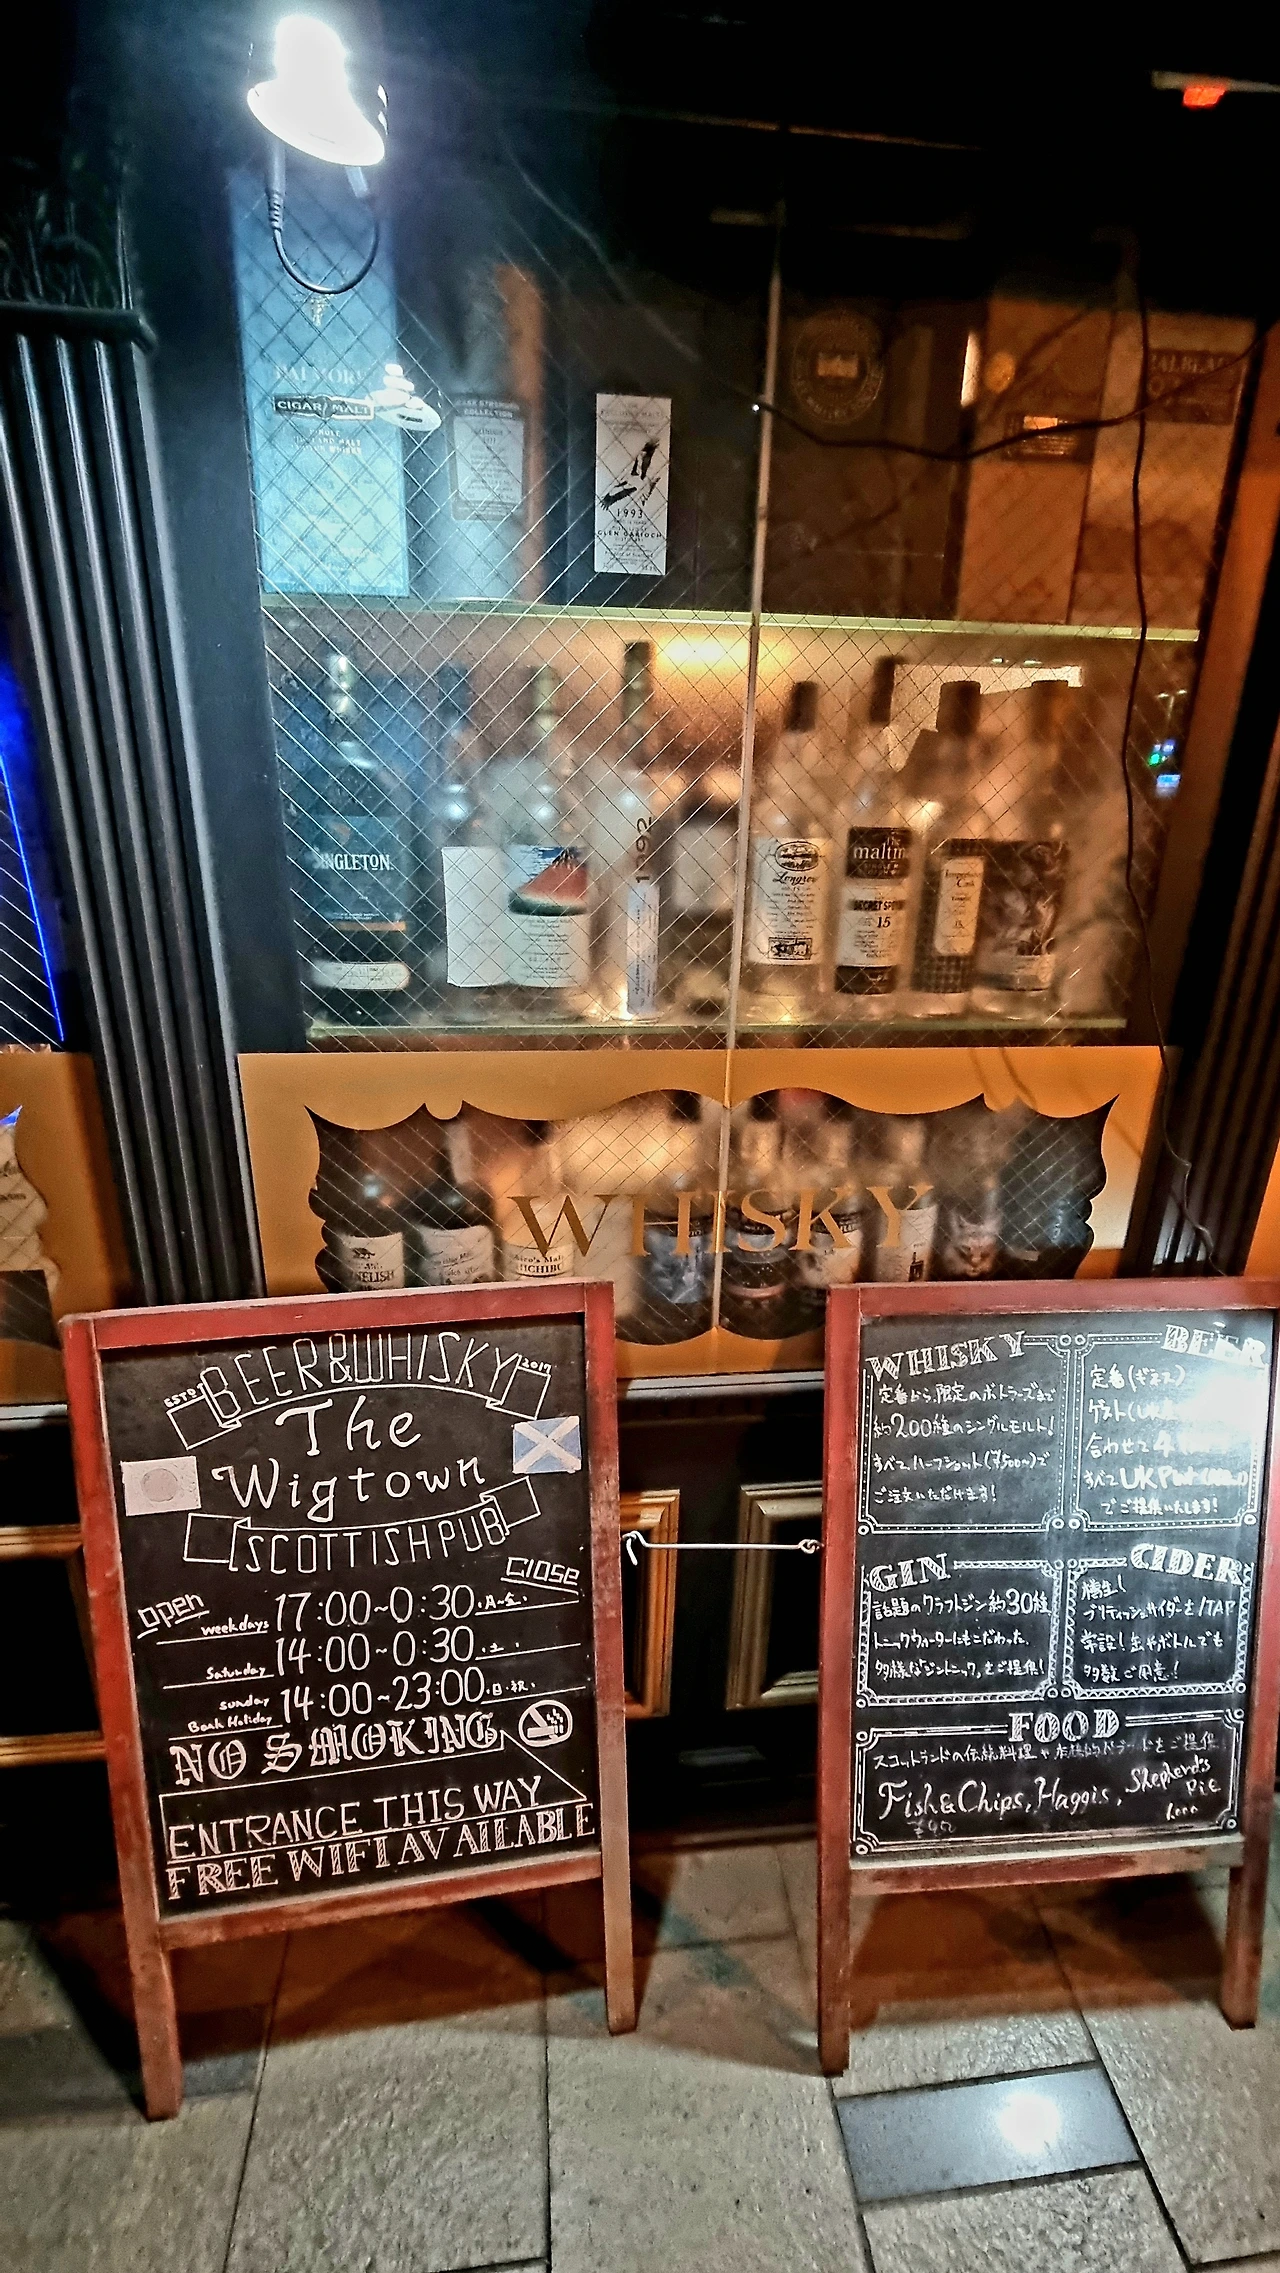 DALMORE
CIGAR MALT
COLLECTION
1993
GLEN GARIOCH
SINGLETON
1992
Longrow
The
maltman
SECRET SPEY
15
WHISKY
BEER&WHISKY
ESTD
2017
The
Wigtown
SCOTTISH PUB
open
close
weekdays 17:00~0:30 月~金
Saturday 14:00~0:30 土
Sunday
Bank Holiday 14:00~23:00 日・祝
NO SMOKING
ENTRANCE THIS WAY
FREE WIFI AVAILABLE
WHISKY
定番から、限定のボトラーズまで
約200種のシングルモルト!
すべて、ハーフショット(¥500~)で
ご注文いただけます!
BEER
定番(ギネス)
ゲスト(UK
合わせて4
すべてUK Pint
でご提供いたします!
GIN
話題のクラフトジン約30種
トニックウォーターにもこだわった、
多様な「ジントニック」をご提供!
CIDER
樽生!
ブリティッシュサイダーを1TAP
常設!生やボトルでも
多数ご用意!
FOOD
スコットランドの伝統料理や本格的なフードをご提供
Fish&Chips, Haggis, Shepherd's
Pie